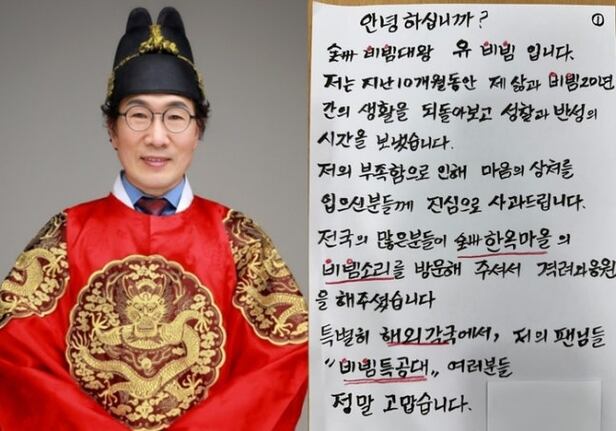 안녕 하십니까? ①
全州 비빔대왕 유 비빔 입니다.
저는 지난10개월동안 제 삶과 비빔20년
간의 생활을 되돌아보고 성찰과 반성의
시간을 보냈습니다.
저의 부족함으로 인해 마음의 상처를
입으신분들께 진심으로 사과드립니다.
전국의 많은분들이 全州 한옥마을의
비빔소리를 방문해 주셔서 격려와응원
을 해주셨습니다
특별히 해외각국에서, 저의 팬님들
“비빔특공대„ 여러분들
정말 고맙습니다.